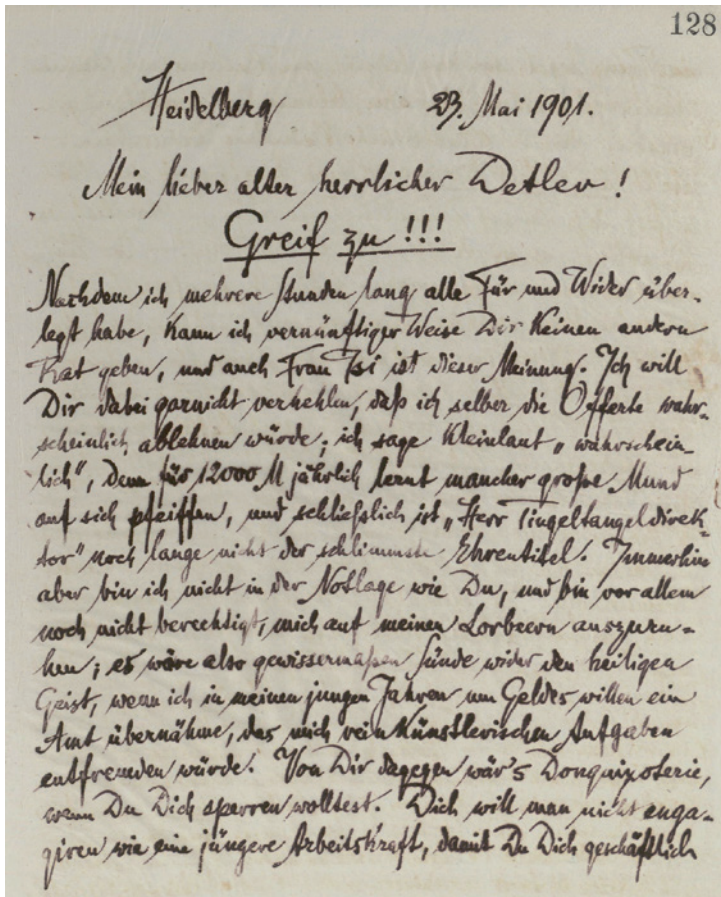 128
Heidelberg 23. Mai 1901.
Mein lieber alter herrlicher Detlev!
Greif zu!!!
Nachdem ich mehrere Stunden lang alle Für und Wider über-
legt habe, kann ich vernünftiger Weise Dir keinen andern
Rat geben, und auch Frau Isi ist dieser Meinung. Ich will
Dir dabei garnicht verhehlen, daß ich selber die Offerte wahr-
scheinlich ablehnen würde; ich sage kleinlaut „wahrschein-
lich“, denn für 12000 M jährlich lernt mancher große Mund
auf sich pfeiffen, und schließlich ist „Herr Tingeltangeldirek-
tor“ noch lange nicht der schlimmste Ehrentitel. Immerhin
aber bin ich nicht in der Notlage wie Du, und bin vor allem
noch nicht berechtigt, mich auf meinen Lorbeern auszuru-
hen; es wäre also gewissermaßen Sünde wider den heiligen
Geist, wenn ich in meinen jungen Jahren um Geldes willen ein
Amt übernähme, das mich rein künstlerischen Aufgaben
entfremden würde. Von Dir dagegen wär's Donquixoterie,
wenn Du Dich sperren wolltest. Dich will man nicht enga-
giren wie eine jüngere Arbeitskraft, damit Du Dich geschäftlich